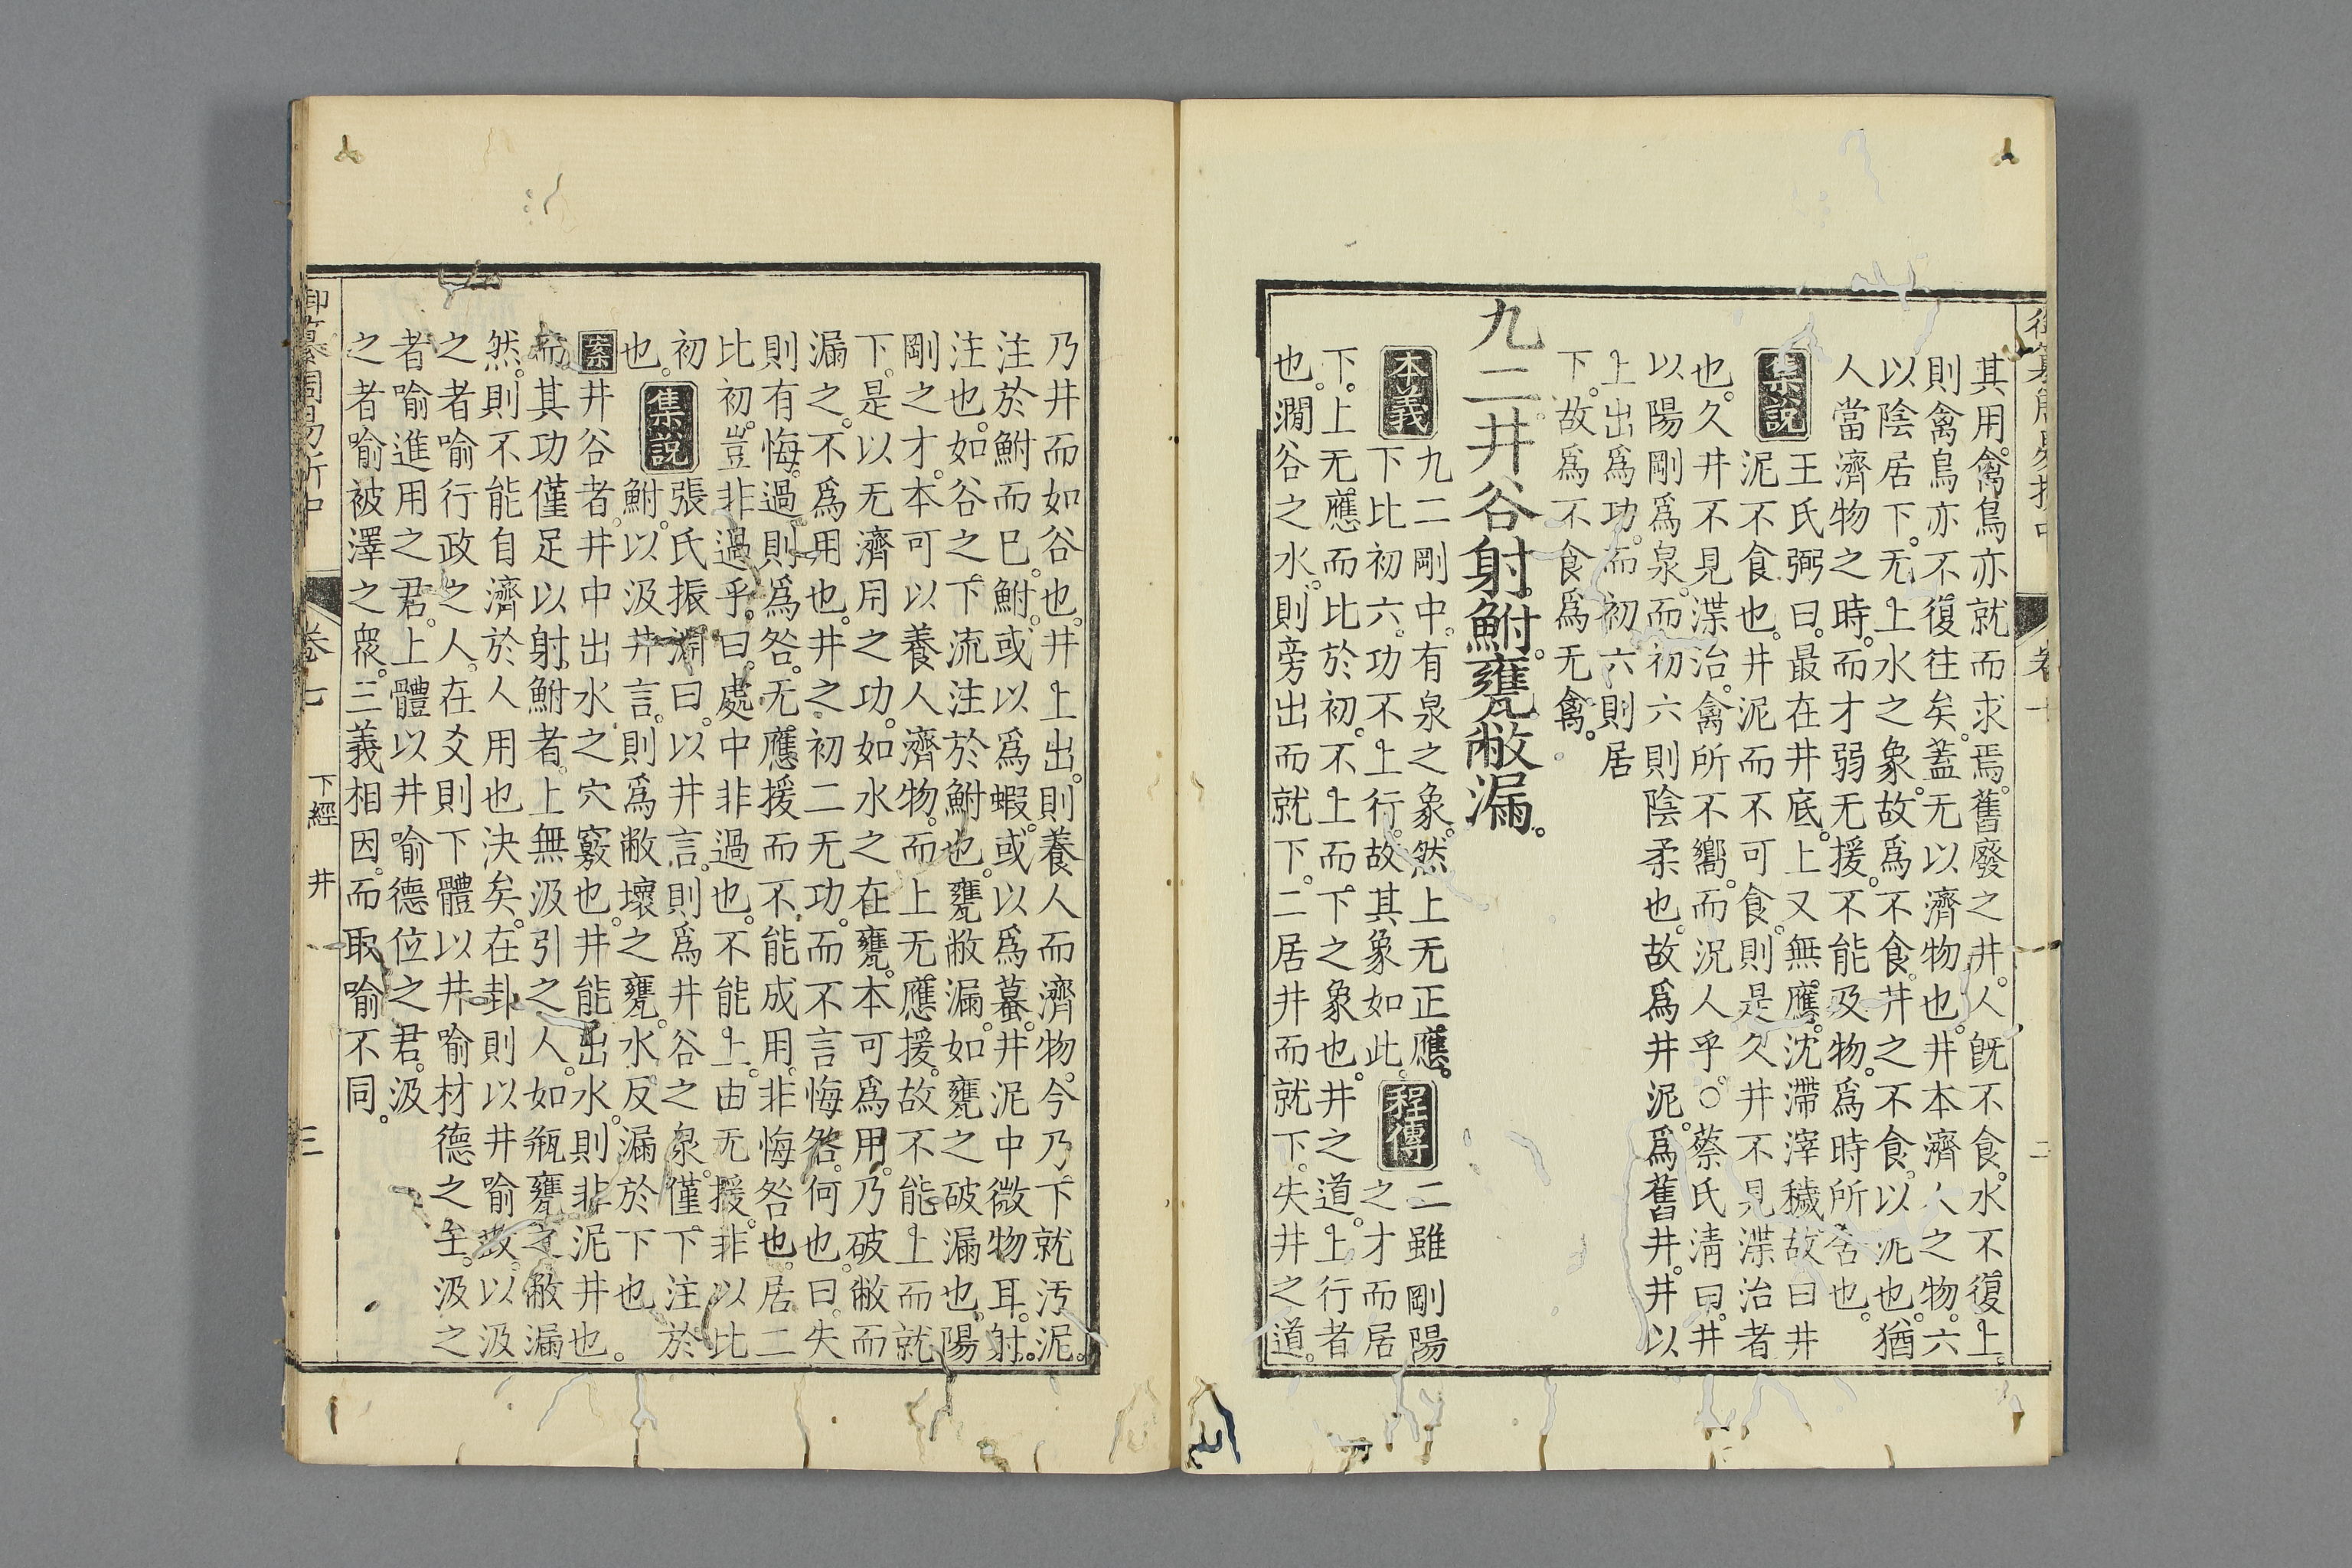 其用。禽鳥亦就而求焉。舊廢之井。人旣不食。水不復上。
則禽鳥亦不復往矣。蓋无以濟物也。井本濟人之物。六
以陰居下。无上水之象。故爲不食。井之不食。以泥也。猶
人當濟物之時。而才弱无援。不能及物。爲時所舍也。
集說
王氏弼曰。最在井底。上又無應。沈滯滓穢。故曰井
泥不食也。井泥而不可食。則是久井不見渫治者
也。久井不見渫治。禽所不嚮。而況人乎。○蔡氏淸曰。井
以陽剛爲泉。而初六則陰柔也。故爲井泥。爲舊井。井以
上出爲功。而初六則居
下。故爲不食爲无禽。
九二井谷射鮒。甕敝漏。
本義
九二剛中。有泉之象。然上无正應。
下比初六。功不上行。故其象如此。
程傳
二雖剛陽
之才而居
下。上无應而比於初。不上而下之象也。井之道。上行者
也。澗谷之水。則旁出而就下。二居井而就下。失井之道。
卷十
二
乃井而如谷也。井上出。則養人而濟物。今乃下就汚泥。
注於鮒而已。鮒。或以爲蝦。或以爲蟇。井泥中微物耳。射。
注也。如谷之下流注於鮒也。甕敝漏。如甕之破漏也。陽
剛之才。本可以養人濟物。而上无應援。故不能上而就
下。是以无濟用之功。如水之在甕。本可爲用。乃破敝而
漏之。不爲用也。井之初二无功。而不言悔咎。何也。曰。失
則有悔。過則爲咎。无應援而不能成用。非悔咎也。居二
比初。豈非過乎。曰。處中非過也。不能上。由无援。非以比
初
也。
集說
張氏振淵曰。以井言。則爲井谷之泉。僅下注於
鮒。以汲井言。則爲敝壞之甕。水反漏於下也。
案
井谷者。井中出水之穴竅也。井能出水。則非泥井也。
而其功僅足以射鮒者。上無汲引之人。如瓶甕之敝漏
然。則不能自濟於人用也決矣。在卦則以井喻政。以汲
之者喻行政之人。在爻則下體以井喻材德之至。汲之
者喻進用之君。上體以井喻德位之君。汲
之者喻被澤之衆。三義相因。而取喻不同。
御纂周易折中
卷十
下經
井
三